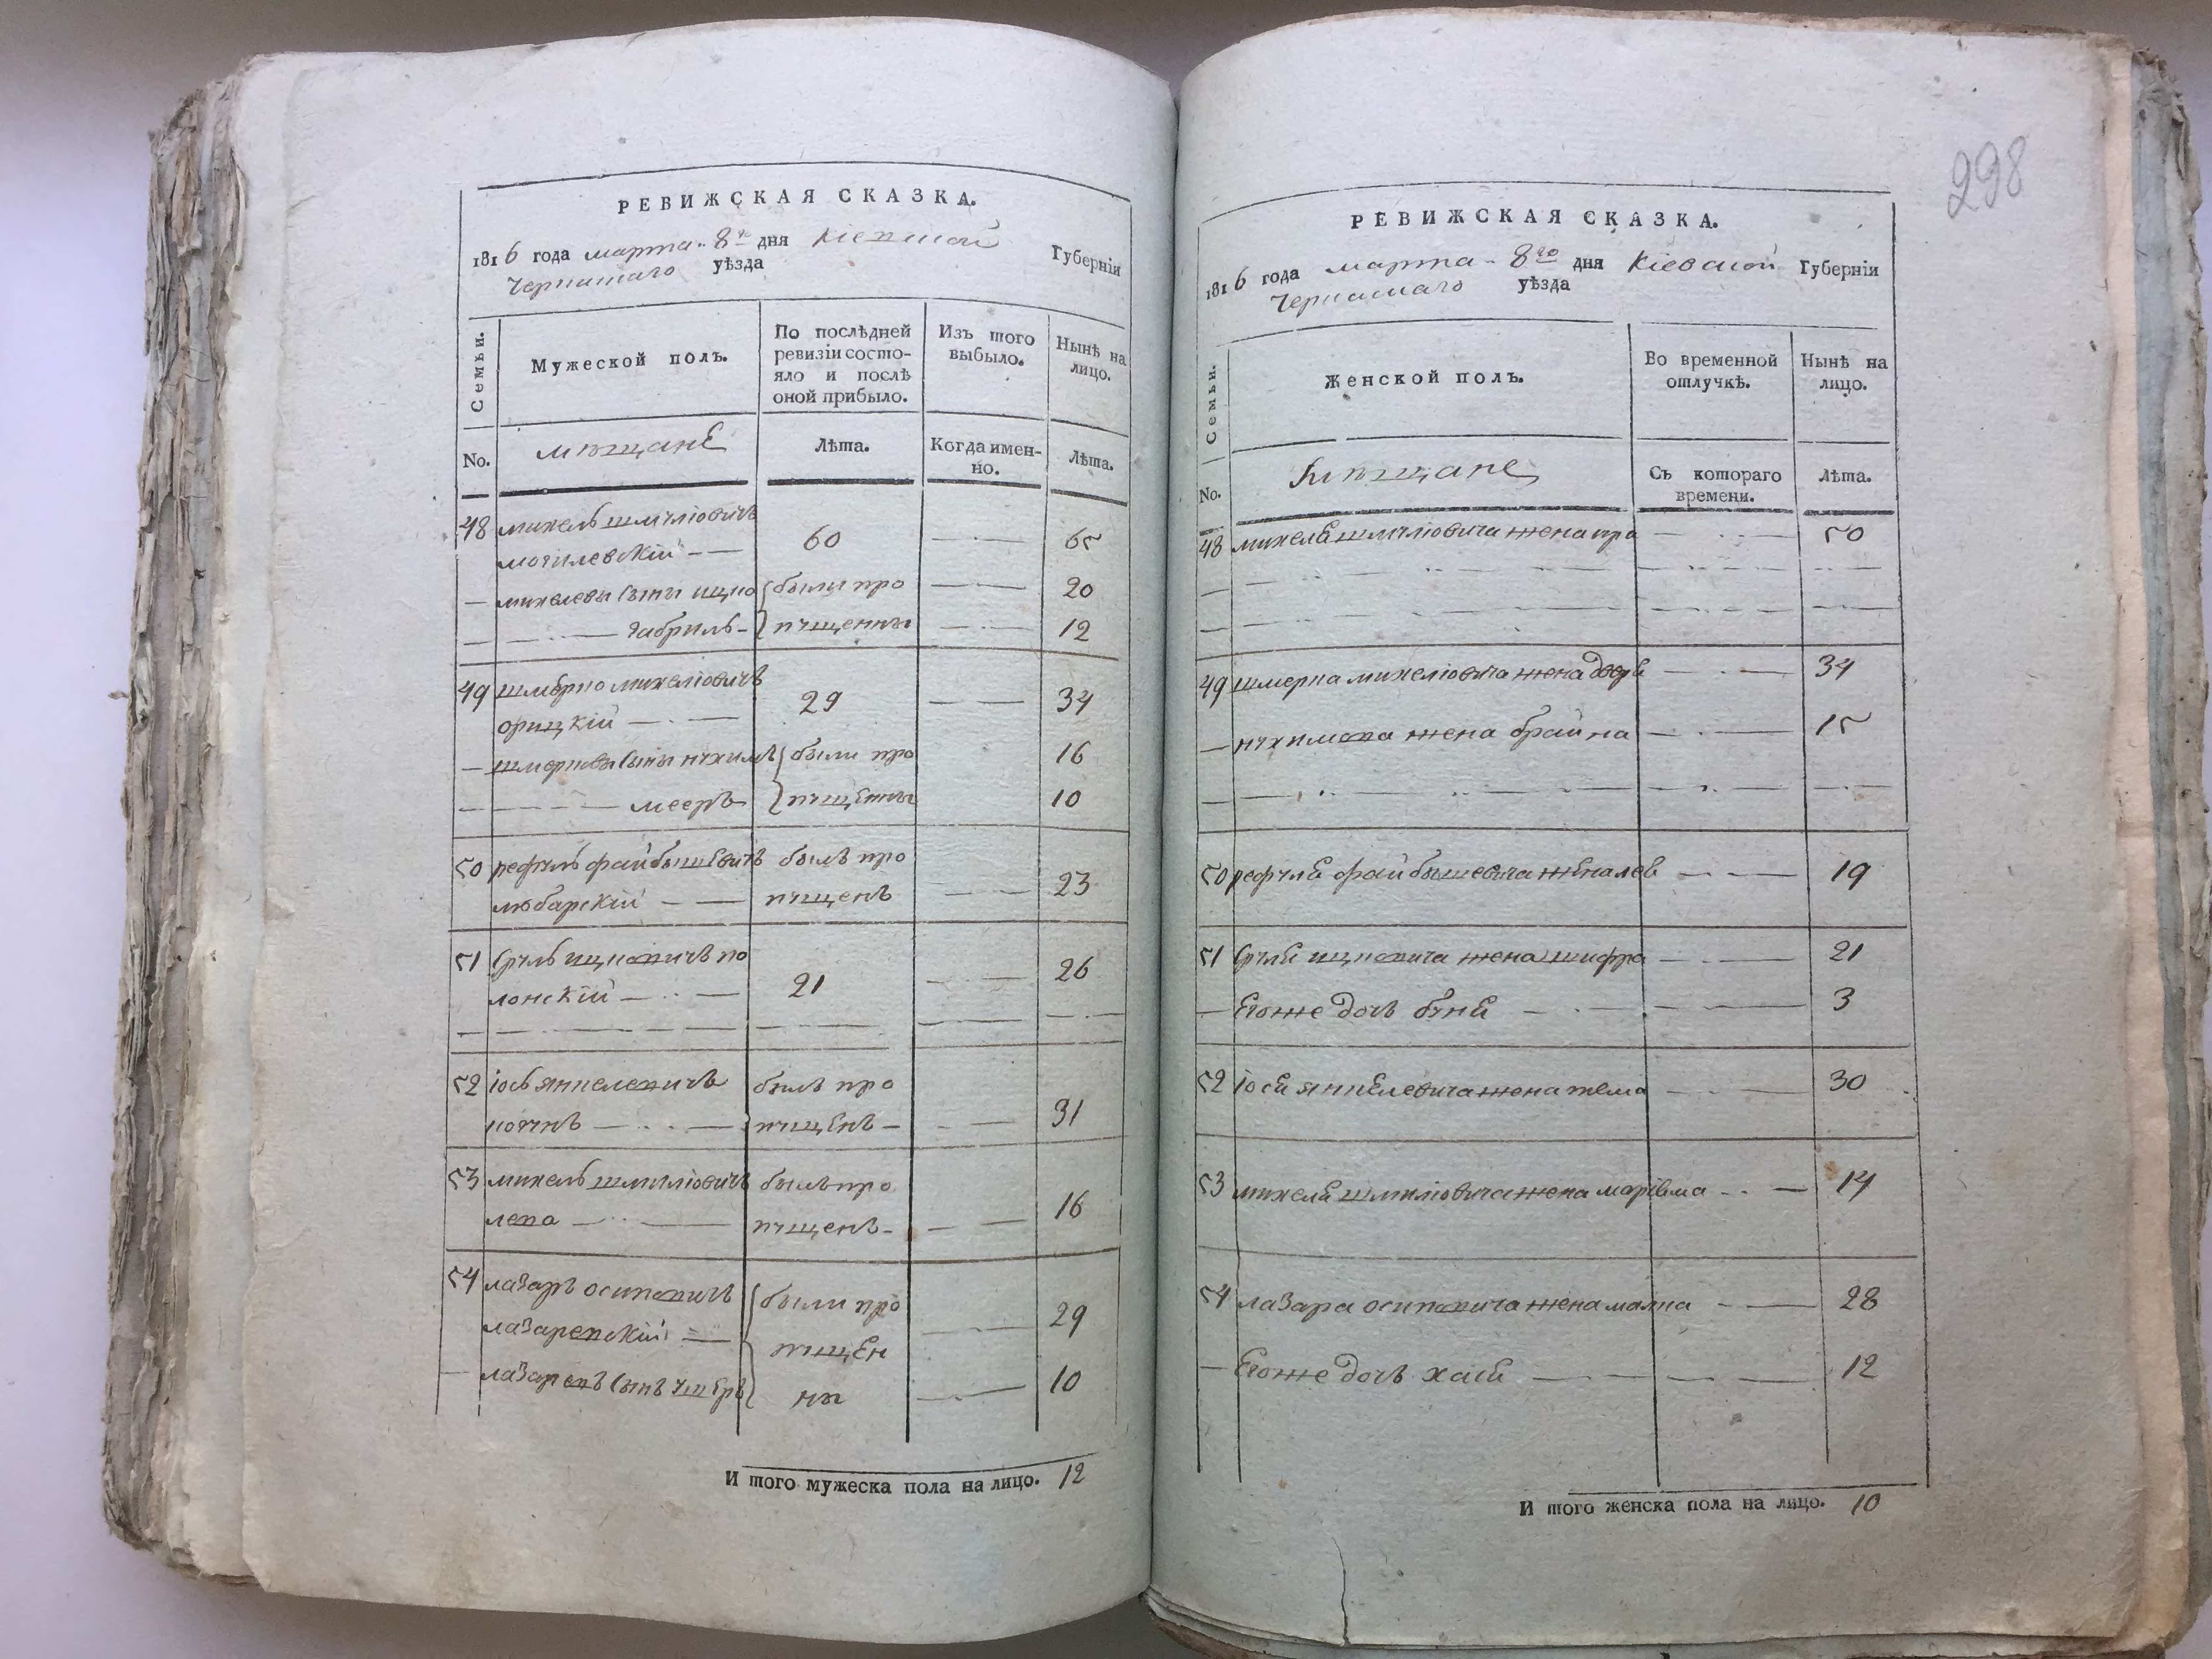 РЕВИЖСКАЯ СКАЗКА.
1816 года марта 8го дня Кіевской Губерніи
Черкаскаго уѣзда
Семьи. Мужеской полъ. По послѣдней ревизіи состояло и послѣ оной прибыло. Изъ того выбыло. Нынѣ на лицо.
No. мѣщане Лѣта. Когда именно. Лѣта.
48 михель шмулiовичъ
могилевскій 60 65
михелевы сыны ицко были про 20
габриль пущенны 12
49 шмерко михеліовичъ
орицкій 29 34
шмерковы сыны нухимъ были про 16
мееръ пущенны 10
50 рефулъ файбышевичъ былъ про
любарскій пущенъ 23
51 сруль ицковичъ по
лонскій 21 26
52 іось янкелевичъ былъ про
пущенъ 31
53 михель шмуліовичъ былъ про
пущенъ 16
54 лазаръ осиповичъ были про
лазаревскій пущен 29
лазаревъ сынъ ушеръ ны 10
И того мужеска пола на лицо. 12
298
РЕВИЖСКАЯ СКАЗКА.
1816 года марта 8го дня Кіевской Губерніи
Черкаскаго уѣзда
Семьи. Женской полъ. Во временной отлучкѣ. Нынѣ на лицо.
No. Мѣщане Съ котораго времени. Лѣта.
48 михеля шмуліовича жена 50
49 шмерка михеліовича жена дворя 34
нухимова жена брайна 15
50 рефуля файбышевича жена лея 19
51 сруля ицковича жена шифра 21
Его же дочь буня 3
52 іося янкелевича жена тема 30
53 михеля шмуліовича жена маріяма 14
54 лазара осиповича жена малка 28
Его же дочь хася 12
И того женска пола на лицо. 10